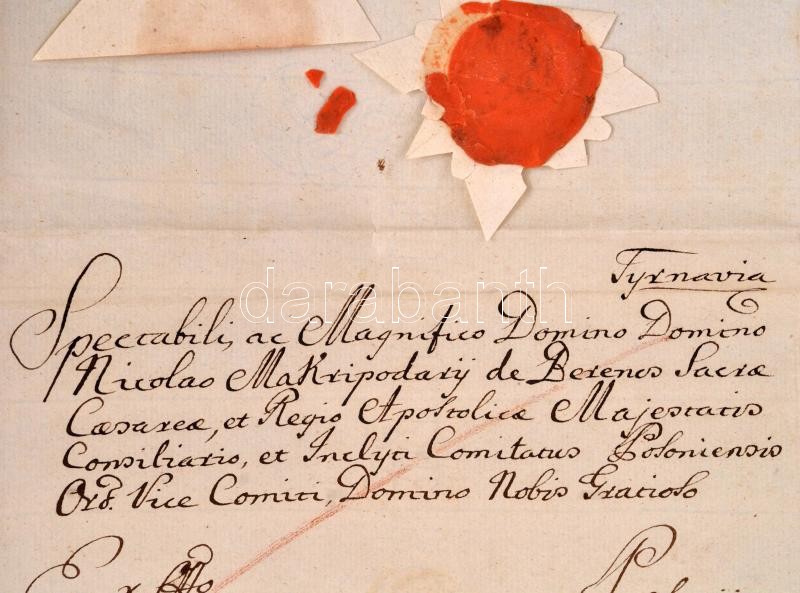 Tyrnavia
Spectabili, ac Magnifico Domino Domino
Nicolao Makripodarÿ de Berencs Sacræ
Cæsareæ, et Regio Apostolicæ Majestatis
Consiliario, et Inclyti Comitatus Posoniensis
Ord. Vice Comiti, Domino Nobis Gratioso
darabanth